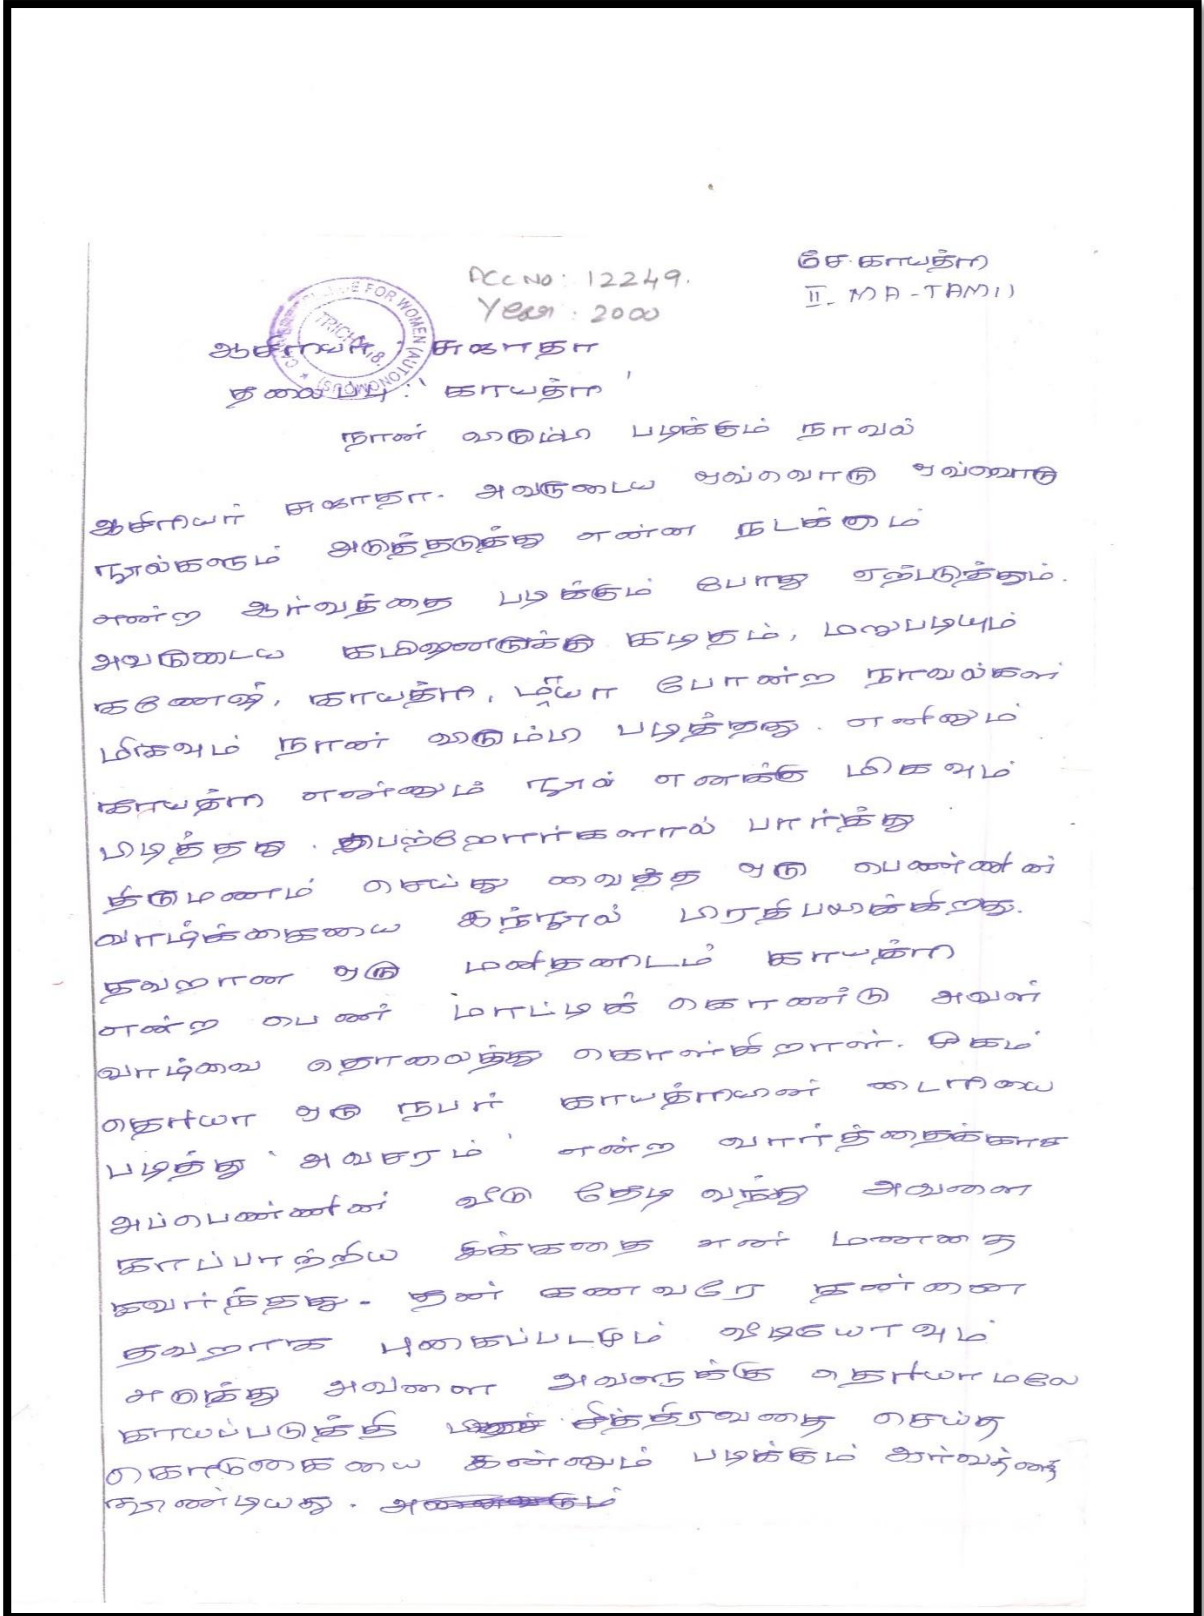 Acc No: 12249.
Year : 2000
சே.காயத்ரி
II - MA - TAMIL
FOR WOMEN (AUTONOMOUS) ★
TRICHY-18.
ஆசிரியர் : சுஜாதா
தலைப்பு : 'காயத்ரி'
நான் விரும்பி படிக்கும் நாவல்
ஆசிரியர் சுஜாதா. அவருடைய ஒவ்வொரு ஒவ்வொரு
நூல்களும் அடுத்தடுத்து என்ன நடக்கும்
என்ற ஆர்வத்தை படிக்கும் போது ஏற்படுத்தும்.
அவருடைய கமிஷனருக்கு கடிதம், மறுபடியும்
கணேஷ், காயத்ரி, ப்ரியா போன்ற நாவல்கள்
மிகவும் நான் விரும்பி படித்தது. எனினும்
காயத்ரி என்னும் நூல் எனக்கு மிகவும்
பிடித்தது. பெற்றோர்களால் பார்த்து
திருமணம் செய்து வைத்த ஒரு பெண்ணின்
வாழ்க்கையை இந்நூல் பிரதிபலிக்கிறது.
தவறான ஒரு மனிதனிடம் காயத்ரி
என்ற பெண் மாட்டிக் கொண்டு அவள்
வாழ்வை தொலைத்து கொள்கிறாள். முகம்
தெரியா ஒரு நபர் காயத்ரியின் டைரியை
படித்து 'அவசரம்' என்ற வார்த்தைக்காக
அப்பெண்ணின் வீடு தேடி வந்து அவளை
காப்பாற்றிய இக்கதை என் மனதை
கவர்ந்தது. தன் கணவரே தன்னை
தவறாக புகைப்படமும் வீடியோவும்
எடுத்து அவளை அவளுக்கு தெரியாமலே
காயப்படுத்தி சித்திரவதை செய்த
கொடுகையை இன்னும் படிக்கும் ஆர்வத்தை
தூண்டியது.